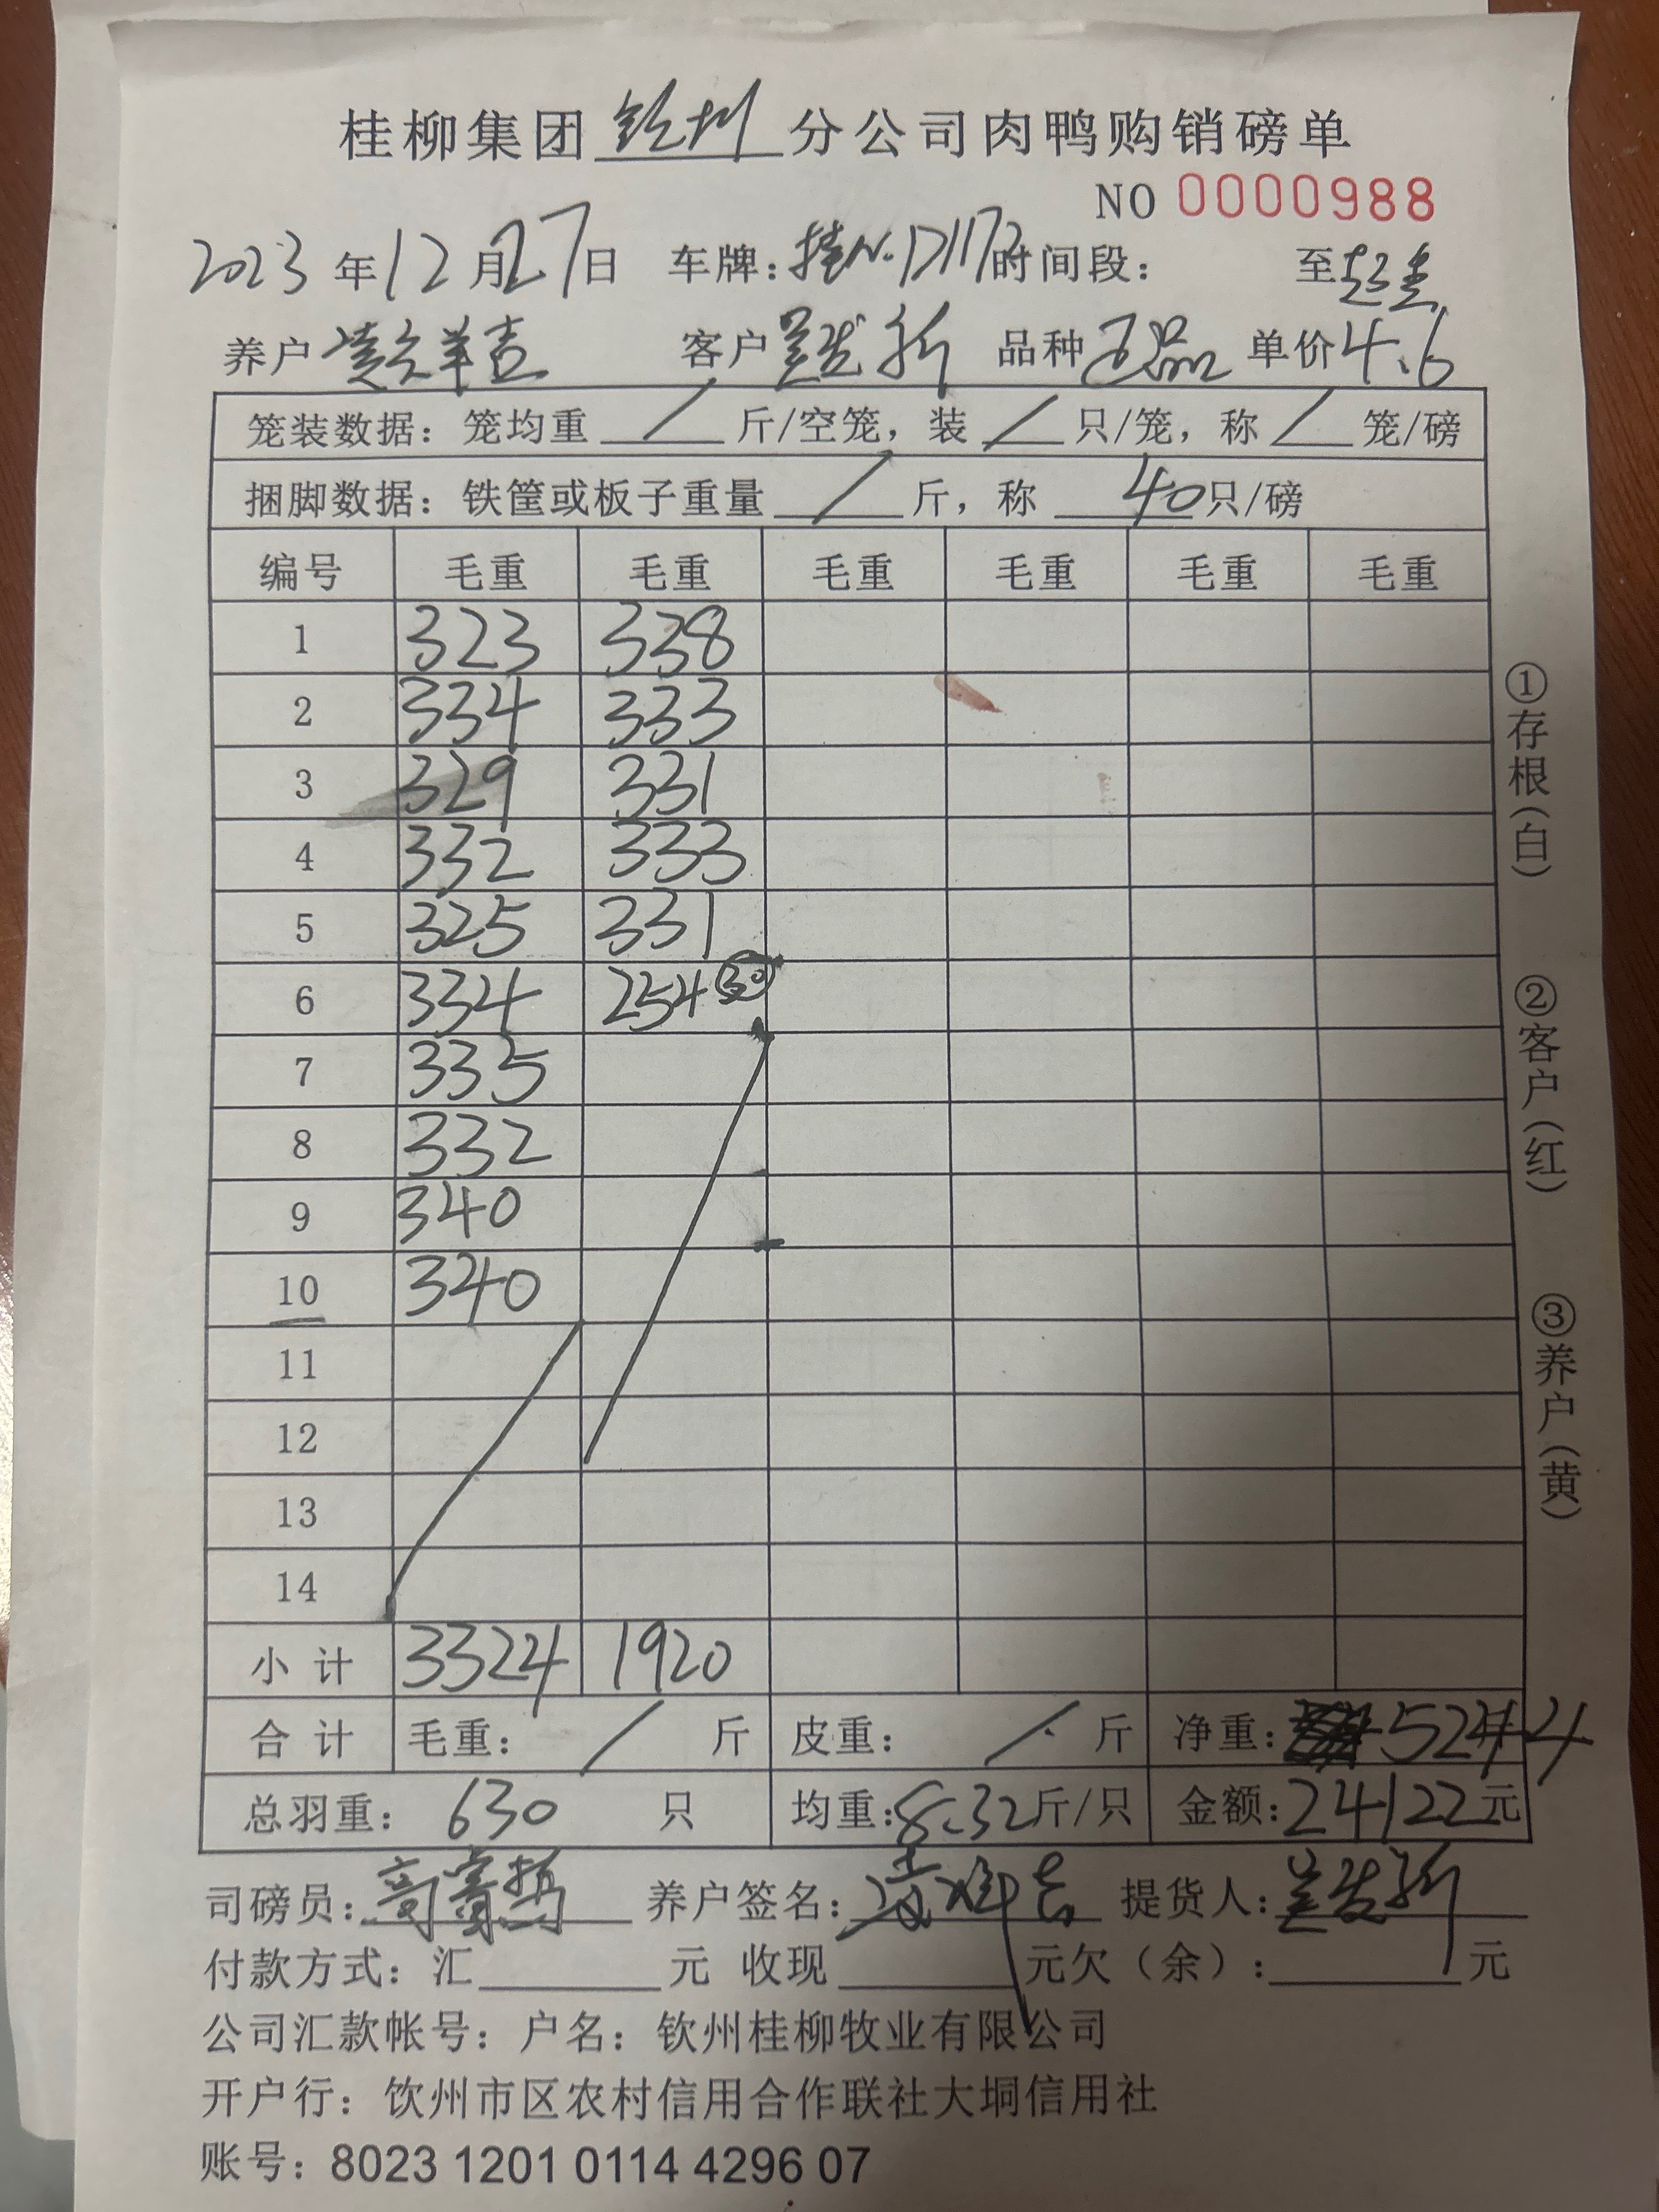 桂柳集团 钦州 分公司肉鸭购销磅单
NO 0000988
2023 年 12 月 27 日 车牌: 桂N.D1172 时间段: 至
养户 客户 品种 单价 4.6
笼装数据: 笼均重 / 斤/空笼, 装 / 只/笼, 称 / 笼/磅
捆脚数据: 铁筐或板子重量 / 斤, 称 40 只/磅
编号 毛重 毛重 毛重 毛重 毛重 毛重
1 323 338
2 334 333
3 329 331
4 332 333
5 325 331
6 334 254 30
7 335
8 332
9 340
10 340
11
12
13
14
小 计 3324 1920
合 计 毛重: / 斤 皮重: / 斤 净重: 5244
总羽重: 630 只 均重: 8.32 斤/只 金额: 24122 元
司磅员: 养户签名: 提货人:
付款方式: 汇 元 收现 元欠(余): 元
公司汇款帐号: 户名: 钦州桂柳牧业有限公司
开户行: 钦州市区农村信用合作联社大垌信用社
账号: 8023 1201 0114 4296 07
①存根(白)
②客户(红)
③养户(黄)